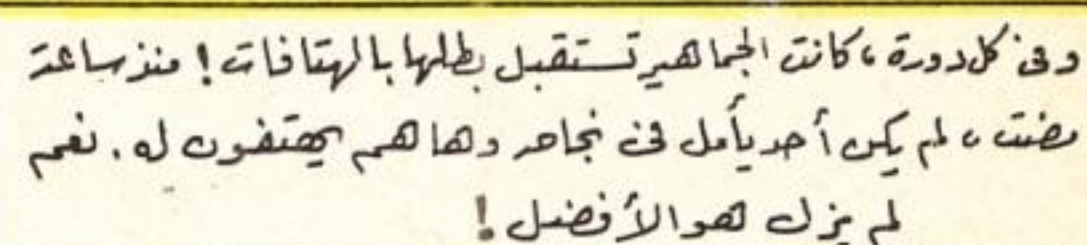 وفى كل دورة، كانت الجماهير تستقبل بطلها بالهتافات! منذ ساعة
مضت، لم يكن أحد يأمل فى نجاحه وها هم يهتفون له. نعم
لم يزل هو الأفضل!